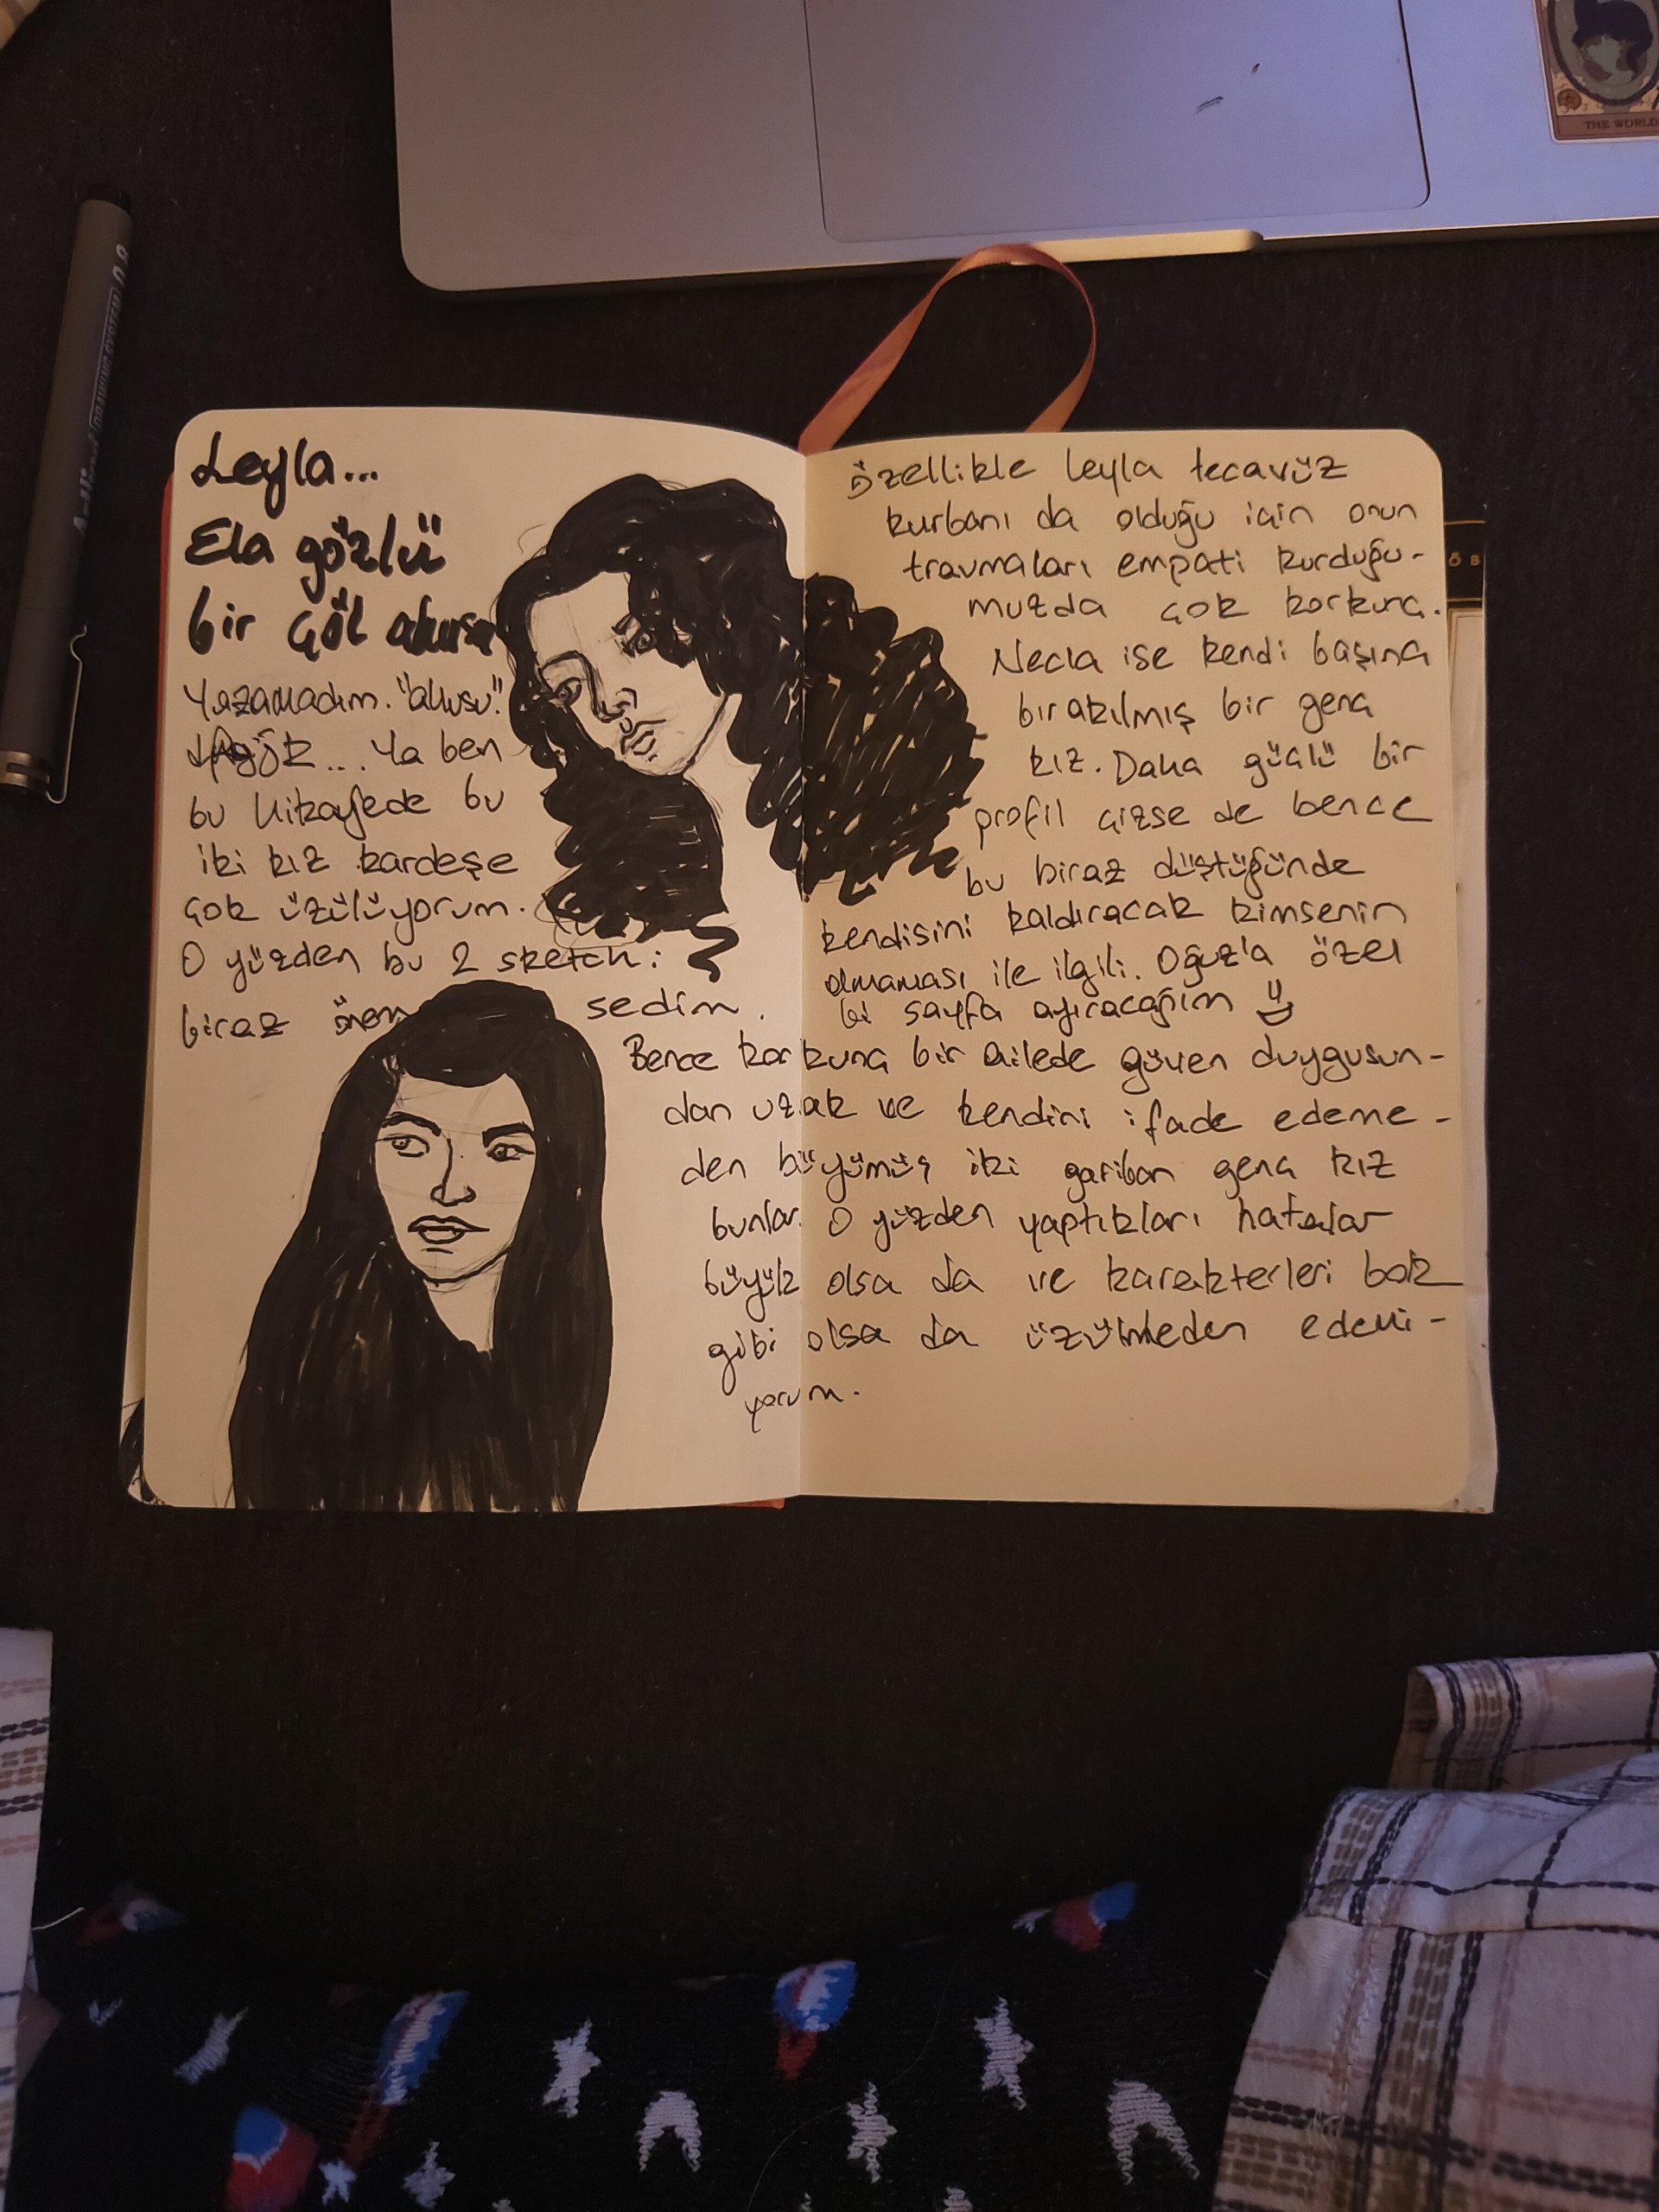 Leyla...
Ela gözlü
bir çöl ahusu
Yazamadım. "ahusu."
Ya ben
bu hikayede bu
iki kız kardeşe
çok üzülüyorum.
O yüzden bu 2 sketch:i
biraz önem sedim.
özellikle Leyla tecavüz
kurbanı da olduğu için onun
travmaları empati kurduğu-
muzda çok korkunç.
Necla ise kendi başına
bırakılmış bir genç
kız. Daha güçlü bir
profil çizse de bence
bu biraz düştüğünde
kendisini kaldıracak kimsenin
olmaması ile ilgili. Oğuz'a özel
bi sayfa ayıracağım
Bence korkunç bir ailede güven duygusun-
dan uzak ve kendini ifade edeme-
den büyümüş iki gariban genç kız
bunlar. O yüzden yaptıkları hatalar
büyük olsa da ve karakterleri bok
gibi olsa da üzülmeden edemi-
yorum.
Artline DRAWING SYSTEM 0.8
THE WORLD